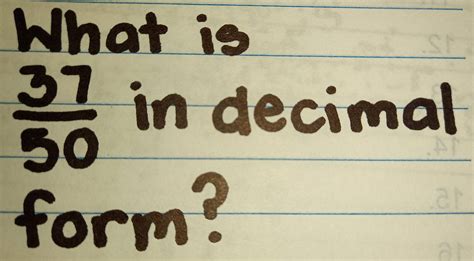 What is
37/50 in decimal
form?
12.
14.
15.
16